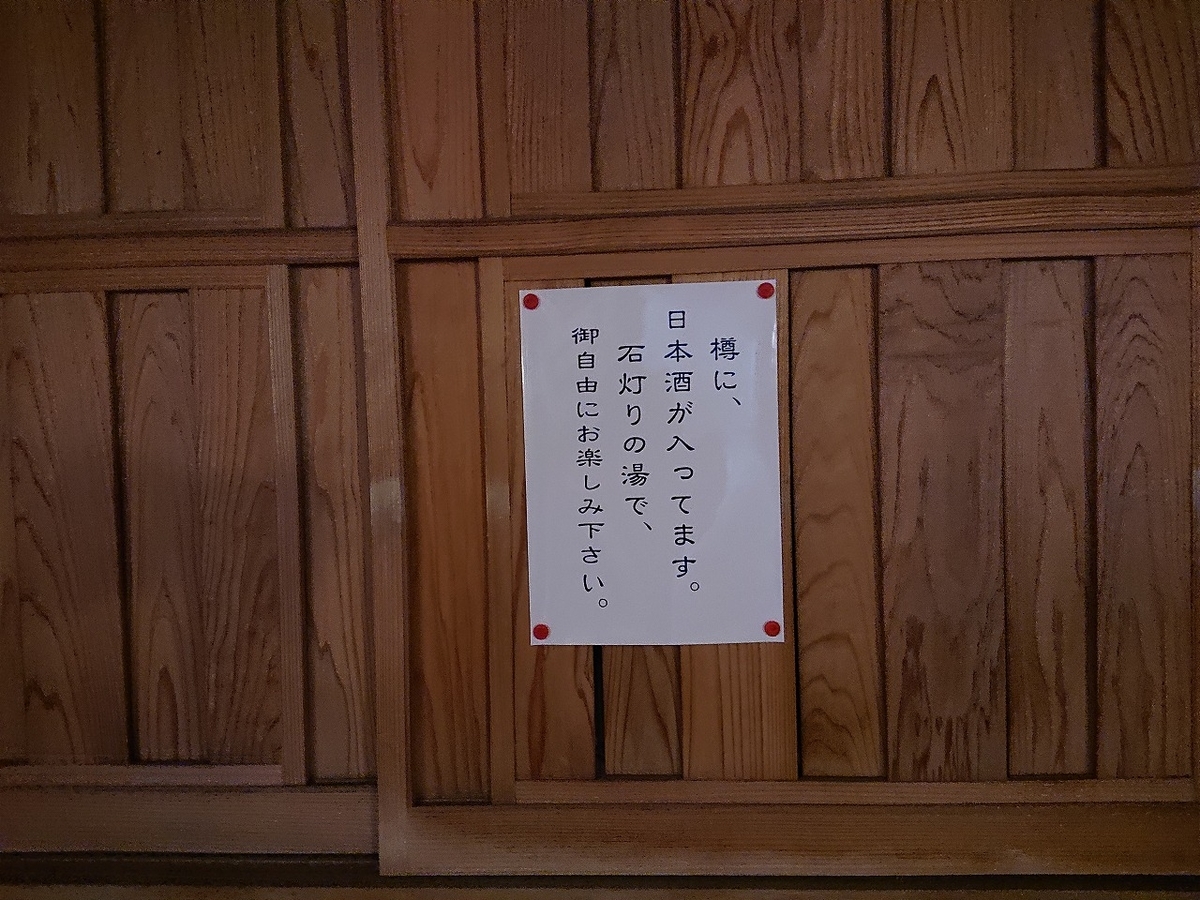 樽に、
日本酒が入ってます。
石灯りの湯で、
御自由にお楽しみ下さい。